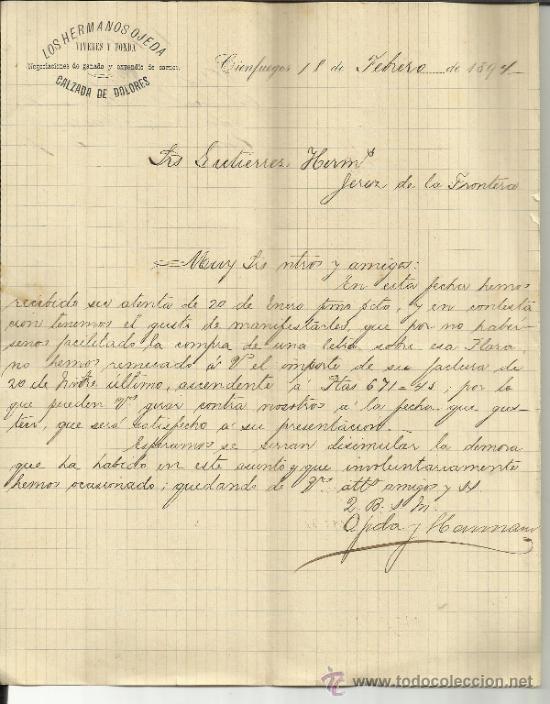 LOS HERMANOS OJEDA
VIVERES Y FONDA
Negociaciones de ganado y expendio de carnes.
CALZADA DE DOLORES
Cienfuegos 18 de Febrero de 1894
Srs Gutierrez Herms
Jerez de la Frontera
Muy Srs ntros y amigos:
En esta fecha hemos
recibido su atenta de 20 de Enero ppdo, y en contesta
cion tenemos el gusto de manifestarles, que por no haber-
senos facilitado la compra de una letra sobre esa Plaza,
no hemos remesado á Vs el importe de su factura de
20 de último, ascendente á Ptas 671=45; por lo
que pueden Vs girar contra nosotros á la fecha que gus-
ten, que será satisfecho á su presentacion.
Esperamos se sirvan disimular la demora
que ha habido en este asunto y que involuntariamente
hemos ocasionado; quedando de Vs atts amigos y ss
Q. B. S. M.
Ojeda y Hermano
todocoleccion
www.todocoleccion.net